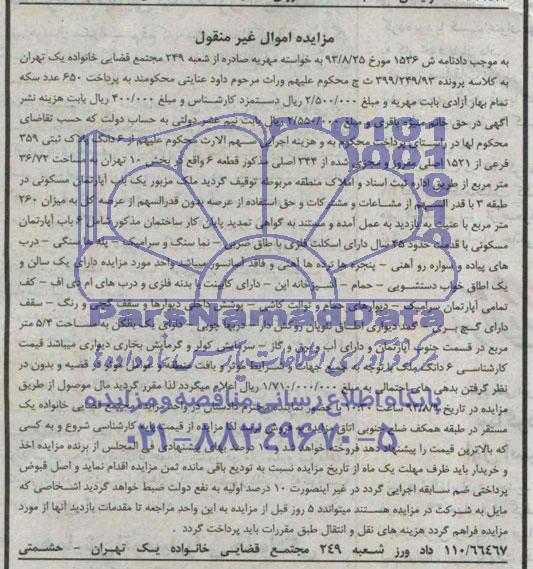 مزایده اموال غیر منقول
به موجب دادنامه ش ۱۵۳۶ مورخ ۹۳/۸/۲۵ به خواسته مهریه صادره از شعبه ۲۴۹ مجتمع قضایی خانواده یک تهران
به کلاسه پرونده ۳۹۹/۲۴۹/۹۳ ث ج محکوم علیهم وراث مرحوم داود عنایتی محکومند به پرداخت ۶۵۰ عدد سکه
تمام بهار آزادی بابت مهریه و مبلغ ۲/۵۰۰/۰۰۰ ریال دستمزد کارشناس و مبلغ ۴۰۰/۰۰۰ ریال بابت هزینه نشر
آگهی در حق خانم منیژه باقری و مبلغ ۲/۵۵۰/۰۰۰ ریال بابت نیم عشر دولتی به حساب دولت که حسب تقاضای
محکوم لها در راستای پرداخت محکوم به و هزینه اجرایی سهم الارث محکوم علیهم از ۶ دانگ پلاک ثبتی ۳۵۹
فرعی از ۱۵۲۱ اصلی مفروز و مجزی شده از ۳۴۴ اصلی مذکور قطعه ۶ واقع در بخش ۱۰ تهران به مساحت ۳۶/۷۲
متر مربع از طریق اداره ثبت اسناد و املاک منطقه مربوطه توقیف گردید ملک مزبور یک باب آپارتمان مسکونی در
طبقه ۳ با قدر السهم از مشاعات و مشترکات و حق استفاده از عرصه بدون قدرالسهم از عرصه کل به میزان ۲۶۰
متر مربع با عنایت به بازدید به عمل آمده و مستند به گواهی تمدید پایان کار ساختمان مذکور شامل ۶ باب آپارتمان
مسکونی با قدمت حدود ۴۵ سال دارای اسکلت فلزی با طاق ضربی – نما سنگ و سرامیک – پله ها سنگی – درب
های پیاده و سواره رو آهنی – پنجره ها نرده ها آهنی و فاقد آسانسور میباشد واحد مورد مزایده دارای یک سالن و
یک اطاق خواب دستشویی – حمام – آشپزخانه اپن – دارای کابینت با بدنه فلزی و درب های ام دی اف – کف
تمامی آپارتمان سرامیک – دیوارهای حمام و توالت کاشی – پوشش داخلی دیوارها و سقف گچی و رنگ – سقف
دارای گچ بری – کمد دیواری اطاق نئوپان روکش دار – دربها چوبی – دارای یک بالکن به مساحت ۵/۴ متر
مربع در قسمت جنوب آپارتمان و دارای آب و برق و گاز – سرمایش کولر و گرمایش بخاری دیواری میباشد قیمت
کارشناسی ۶ دانگ ملک با توجه به جمیع جهات و شرایط موثر و بافت منطقه و عوامل موثر در قضیه و بدون در
نظر گرفتن بدهی های احتمالی به مبلغ ۱/۷۱۰/۰۰۰/۰۰۰ ریال اعلام میگردد لذا مقرر گردید مال موصول از طریق
مزایده در تاریخ با حضور نماینده محترم دادستان در واحد قضایی خانواده یک
مستقر در طبقه همکف ضلع جنوبی اتاق مزایده به فروش لذا مزایده از قیمت پایه کارشناسی شروع و به کسی
که بالاترین قیمت را پیشنهاد دهد فروخته خواهد شد ۱۰ درصد بهای پیشنهادی فی المجلس از برنده مزایده اخذ
و خریدار باید ظرف مهلت یک ماه از تاریخ مزایده نسبت به تودیع باقی مانده ثمن مزایده اقدام نماید و اصل قبوض
پرداختی ضم سابقه اجرایی گردد در غیر اینصورت ۱۰ درصد اولیه به نفع دولت ضبط خواهد گردید اشخاصی که
مایل به شرکت در مزایده هستند میتوانند ۵ روز قبل از مزایده به این واحد مراجعه تا مقدمات بازدید آنها از مورد
مزایده فراهم گردد هزینه های نقل و انتقال طبق مقررات باید پرداخت گردد .
۱۱۰/۶۶۴۶۷ داد ورز شعبه ۲۴۹ مجتمع قضائی خانواده یک تهران – حشمتی
ParsNamadData
مرکز فرآوری اطلاعات پارس نماد داده ها
پایگاه اطلاع رسانی مناقصه و مزایده
۰۲۱-۸۸۳۴۹۶۷۰-۵